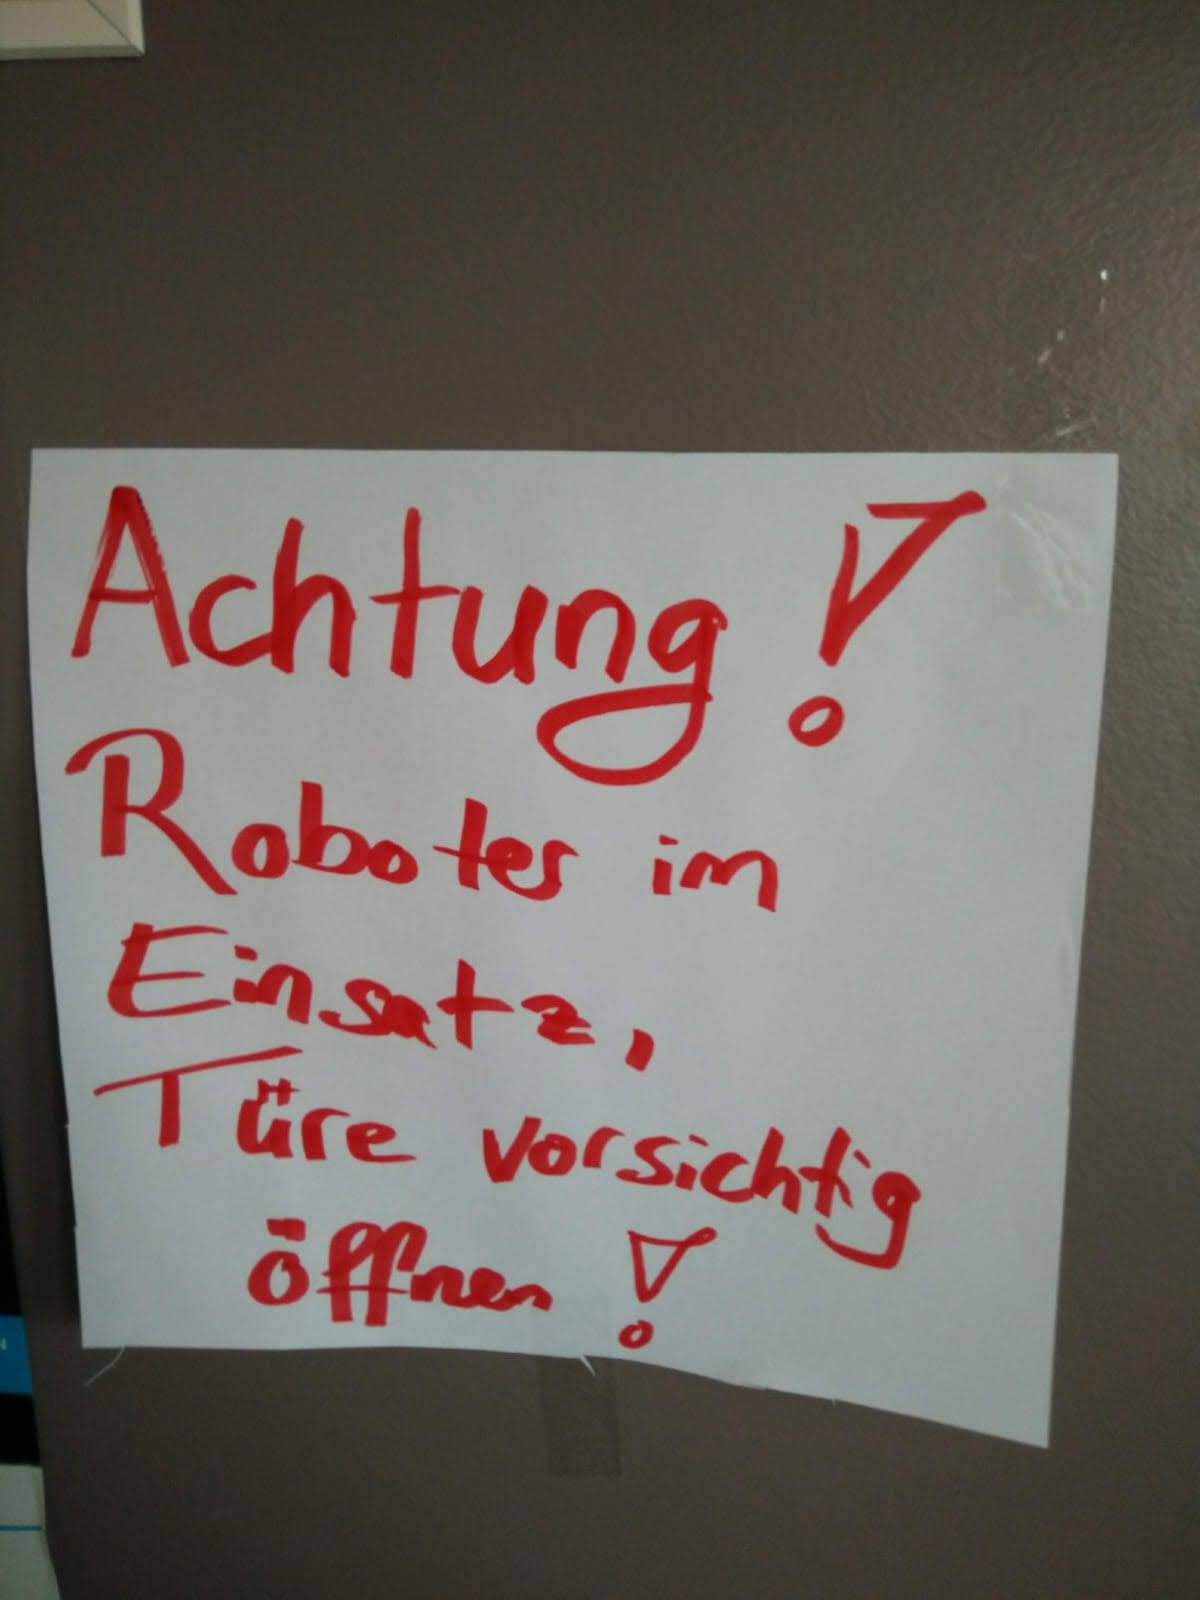 Achtung!
Roboter im
Einsatz,
Türe vorsichtig
öffnen!